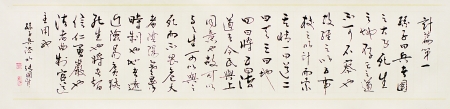 計篇第一
孫子曰兵者國
之大事死生
之地存亡之道
不可不察也
故經之以五事
校之以計而索
其情一曰道二
曰天三曰地
四曰將五曰法
道者令民與上
同意也故可以
與之生可以與之
死而不畏危天
者陰陽寒暑
時制也地者遠
近險易廣狹
死生也將者智
信仁勇嚴也
法者曲制官道
主用也
孫子兵法